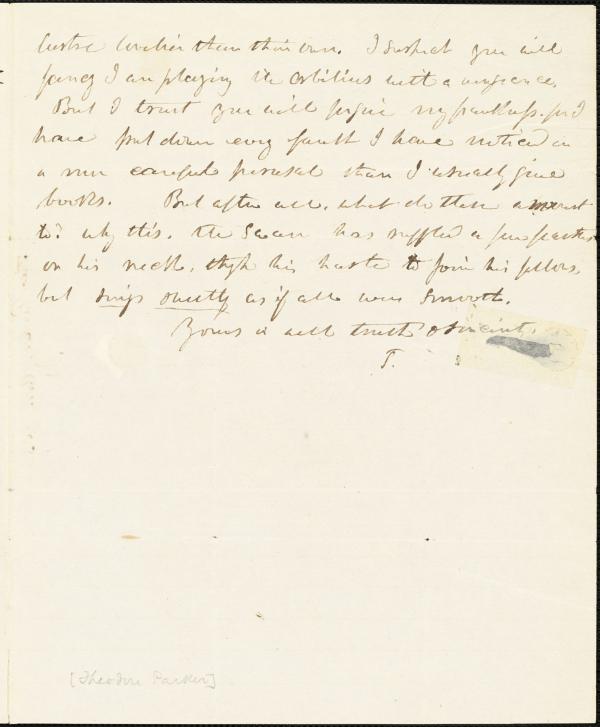 lustre lovelier than their own. I suspect you will
fancy I am playing the Orbilius with a vengeance.
But I trust you will forgive my frankness. for I
have put down every fault I have noticed in
a more careful perusal than I usually give
books. But after all, what do these amount
to? why this, the Swan has ruffled a few feathers
on his neck, thro' his haste to join his fellows,
but sings sweetly as if all were smooth.
Yours in all truth &
T.
[Theodore Parker]